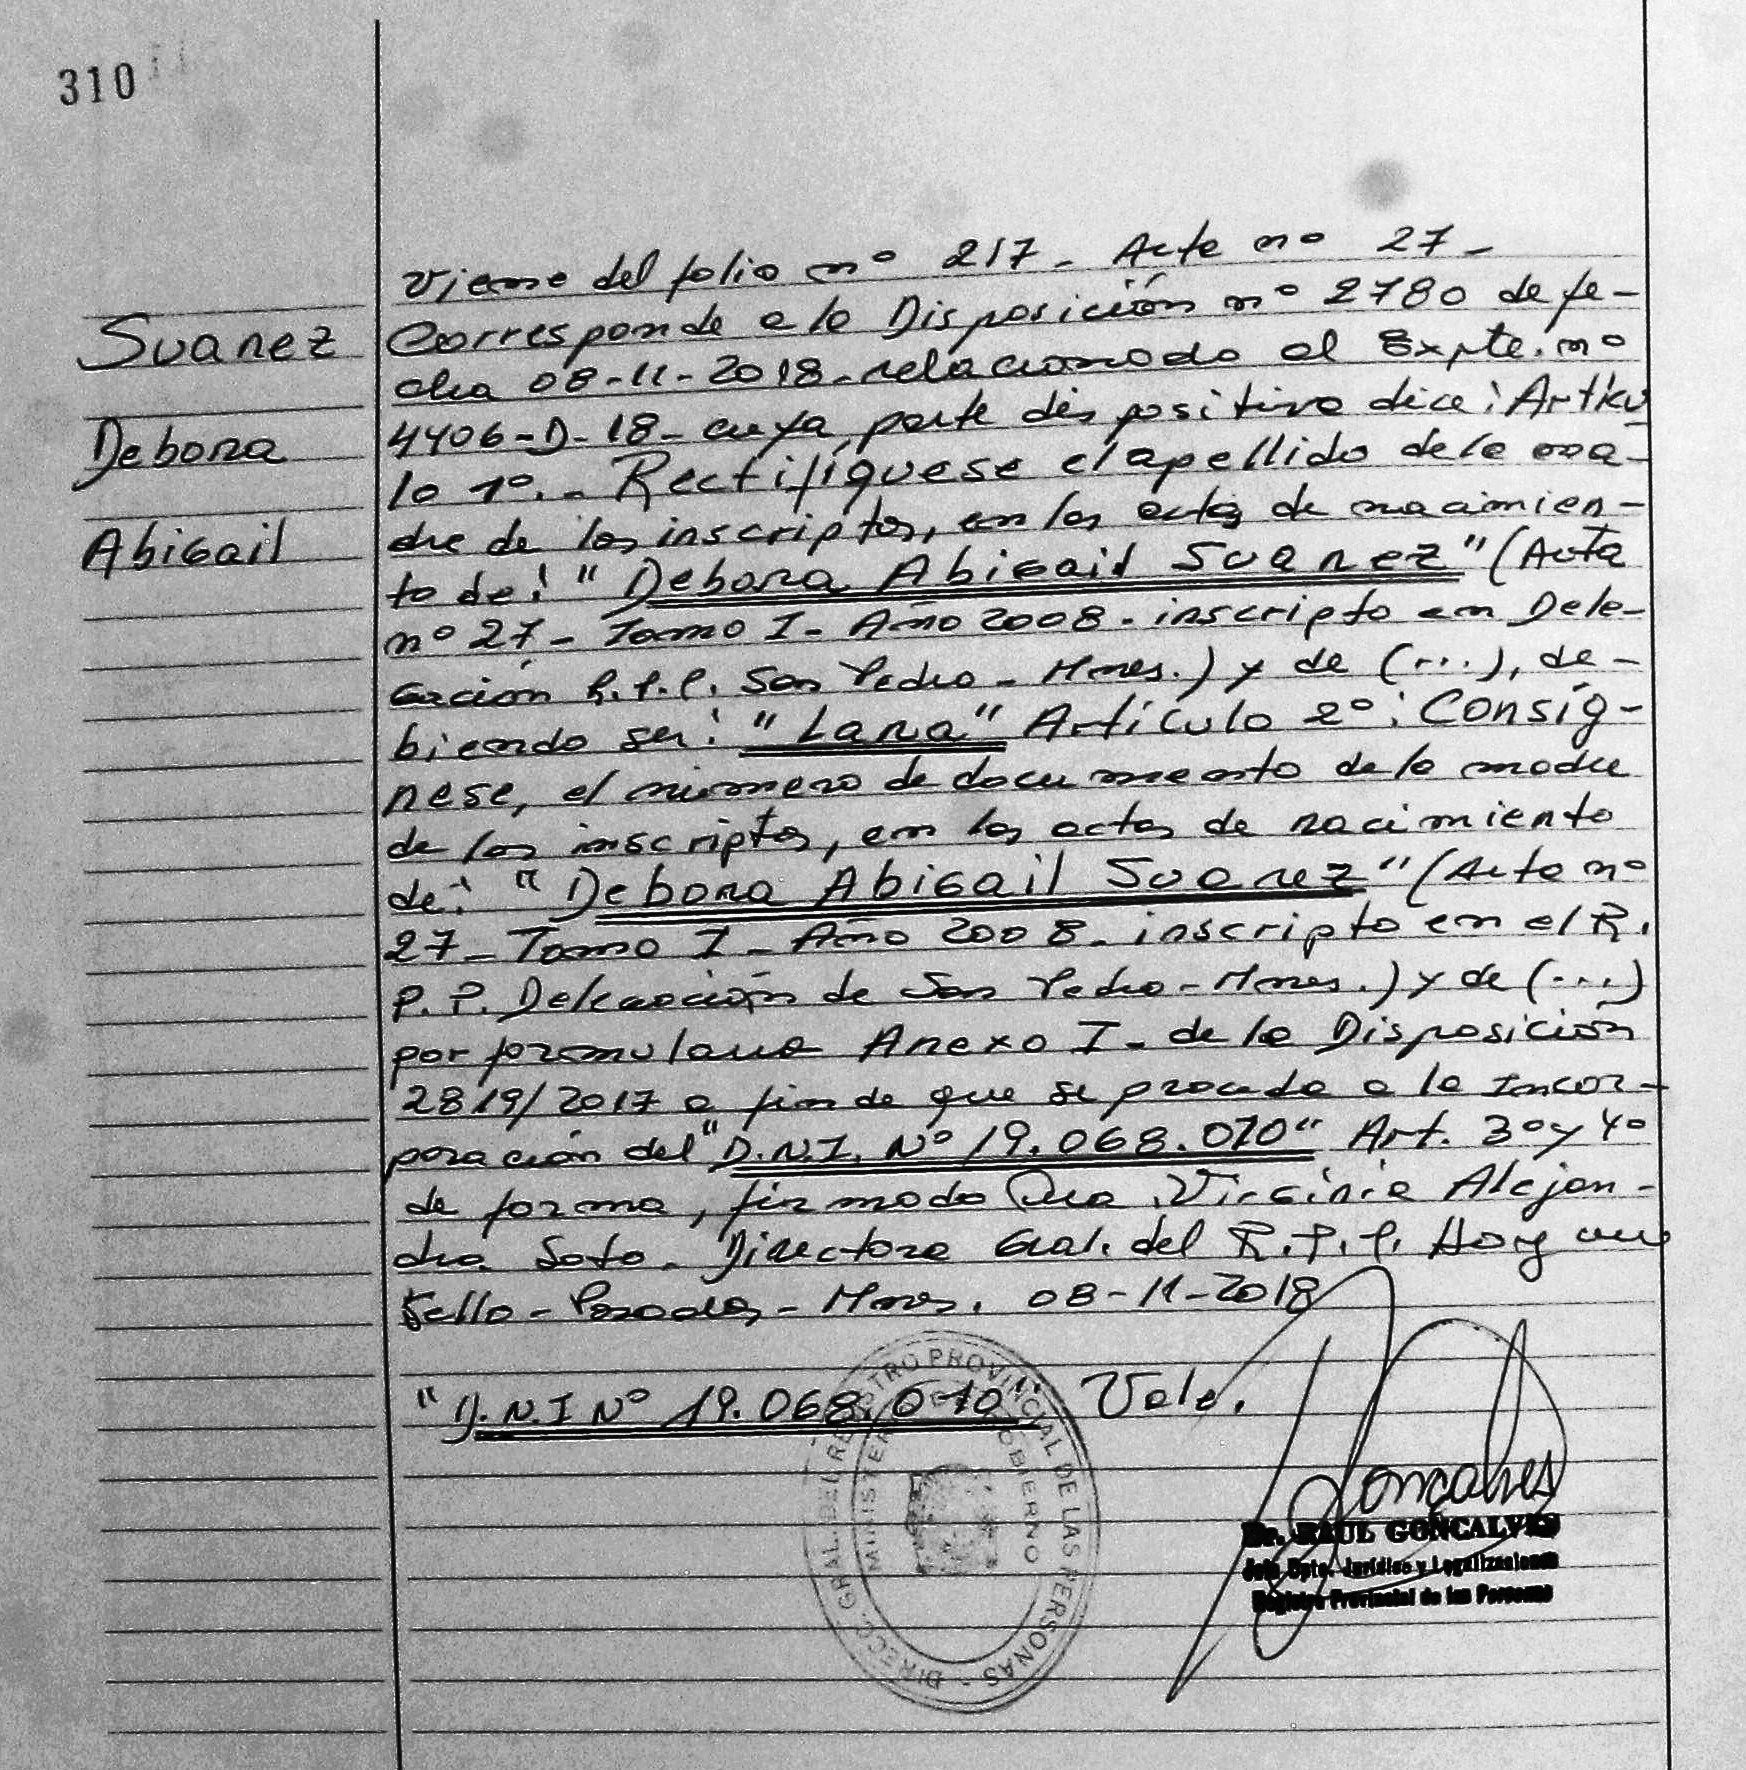 310
Suarez
Debora
Abigail
Viene del folio nº 217 - Acta nº 27 -
Corresponde a la Disposición nº 2780 de fe-
cha 08-11-2018 - relacionado al Expte. nº
4406-D-18- cuya parte dispositiva dice: Artícu
lo 1º.- Rectifíquese el apellido de la ma-
dre de los inscriptos, en las actas de nacimien-
to de: "Debora Abigail Suarez" (Acta
nº 27 - Tomo I - Año 2008 - inscripto en Dele-
gación R.P.P. San Pedro - Mnes.) y de (...), de-
biendo ser: "Lara" Artículo 2º: Consíg-
nese, el número de documento de la madre
de los inscriptos, en las actas de nacimiento
de: "Debora Abigail Suarez" (Acta nº
27 - Tomo I - Año 2008 - inscripto en el R.
P.P. Delegación de San Pedro - Mnes.) y de (...)
por formulario Anexo I - de la Disposición
2819/2017 a fin de que se proceda a la Incor-
poración del "D.N.I. Nº 19.068.070" Art. 3º y 4º
de forma, firmado Dra. Virginia Alejan-
dra Soto - Directora Gral. del R.P.P. Hay un
sello - Posadas - Mnes. 08-11-2018
"D.N.I Nº 19.068.010" Vale.
DIRECC. GRAL. DEL REGISTRO PROVINCIAL DE LAS PERSONAS -
MINISTERIO GOBIERNO
Goncalves
Dr. RAUL GONCALVES
Jefe Dpto. Jurídico y Legalizaciones
Registro Provincial de las Personas